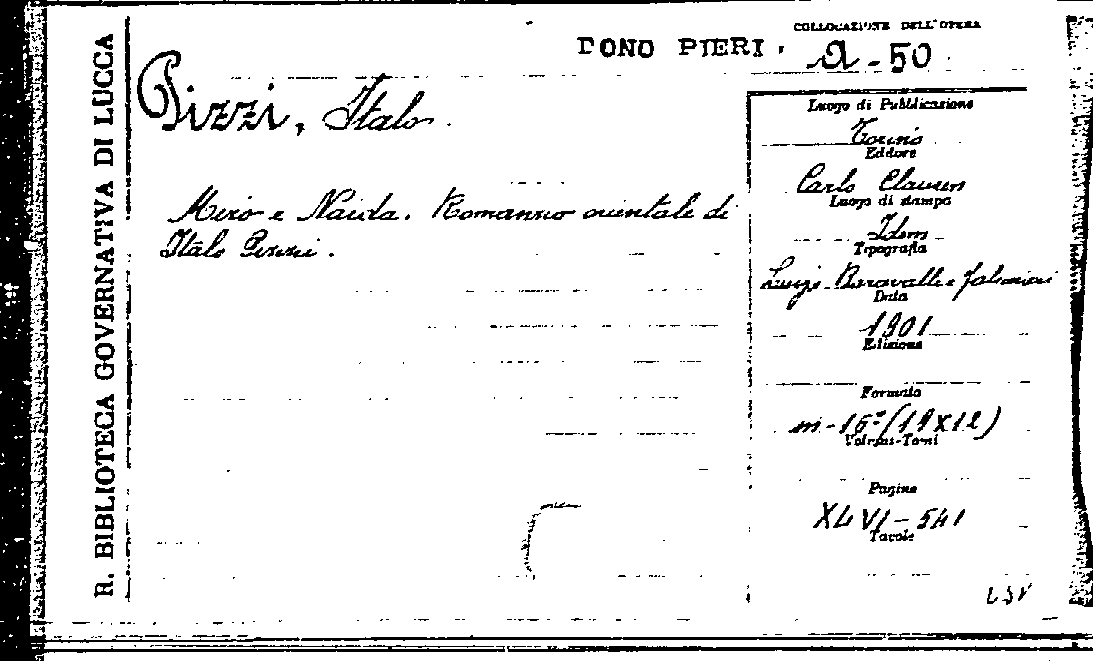 R. BIBLIOTECA GOVERNATIVA DI LUCCA
COLLOCAZIONE DELL'OPERA
DONO PIERI. a - 50
Pizzi, Italo.
Miro e Naida. Romanzo orientale di
Italo Pizzi.
Luogo di Pubblicazione
Torino
Editore
Carlo Clausen
Luogo di stampa
Idem
Tipografia
Luigi Baravalle e Falconieri
Data
1901
Edizione
Formato
in-16º (19x12)
Volumi-Tomi
Pagine
XLVI - 541
Tavole